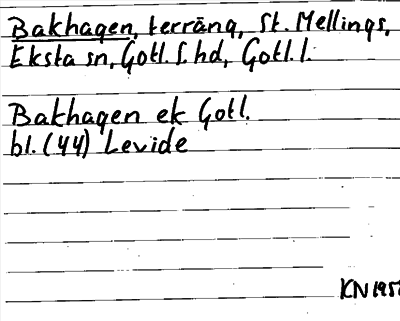 Bakhagen, terräng, St. Mellings,
Eksta sn, Gotl. S. hd, Gotl. l.
Bakhagen ek Gotl.
bl. (44) Levide